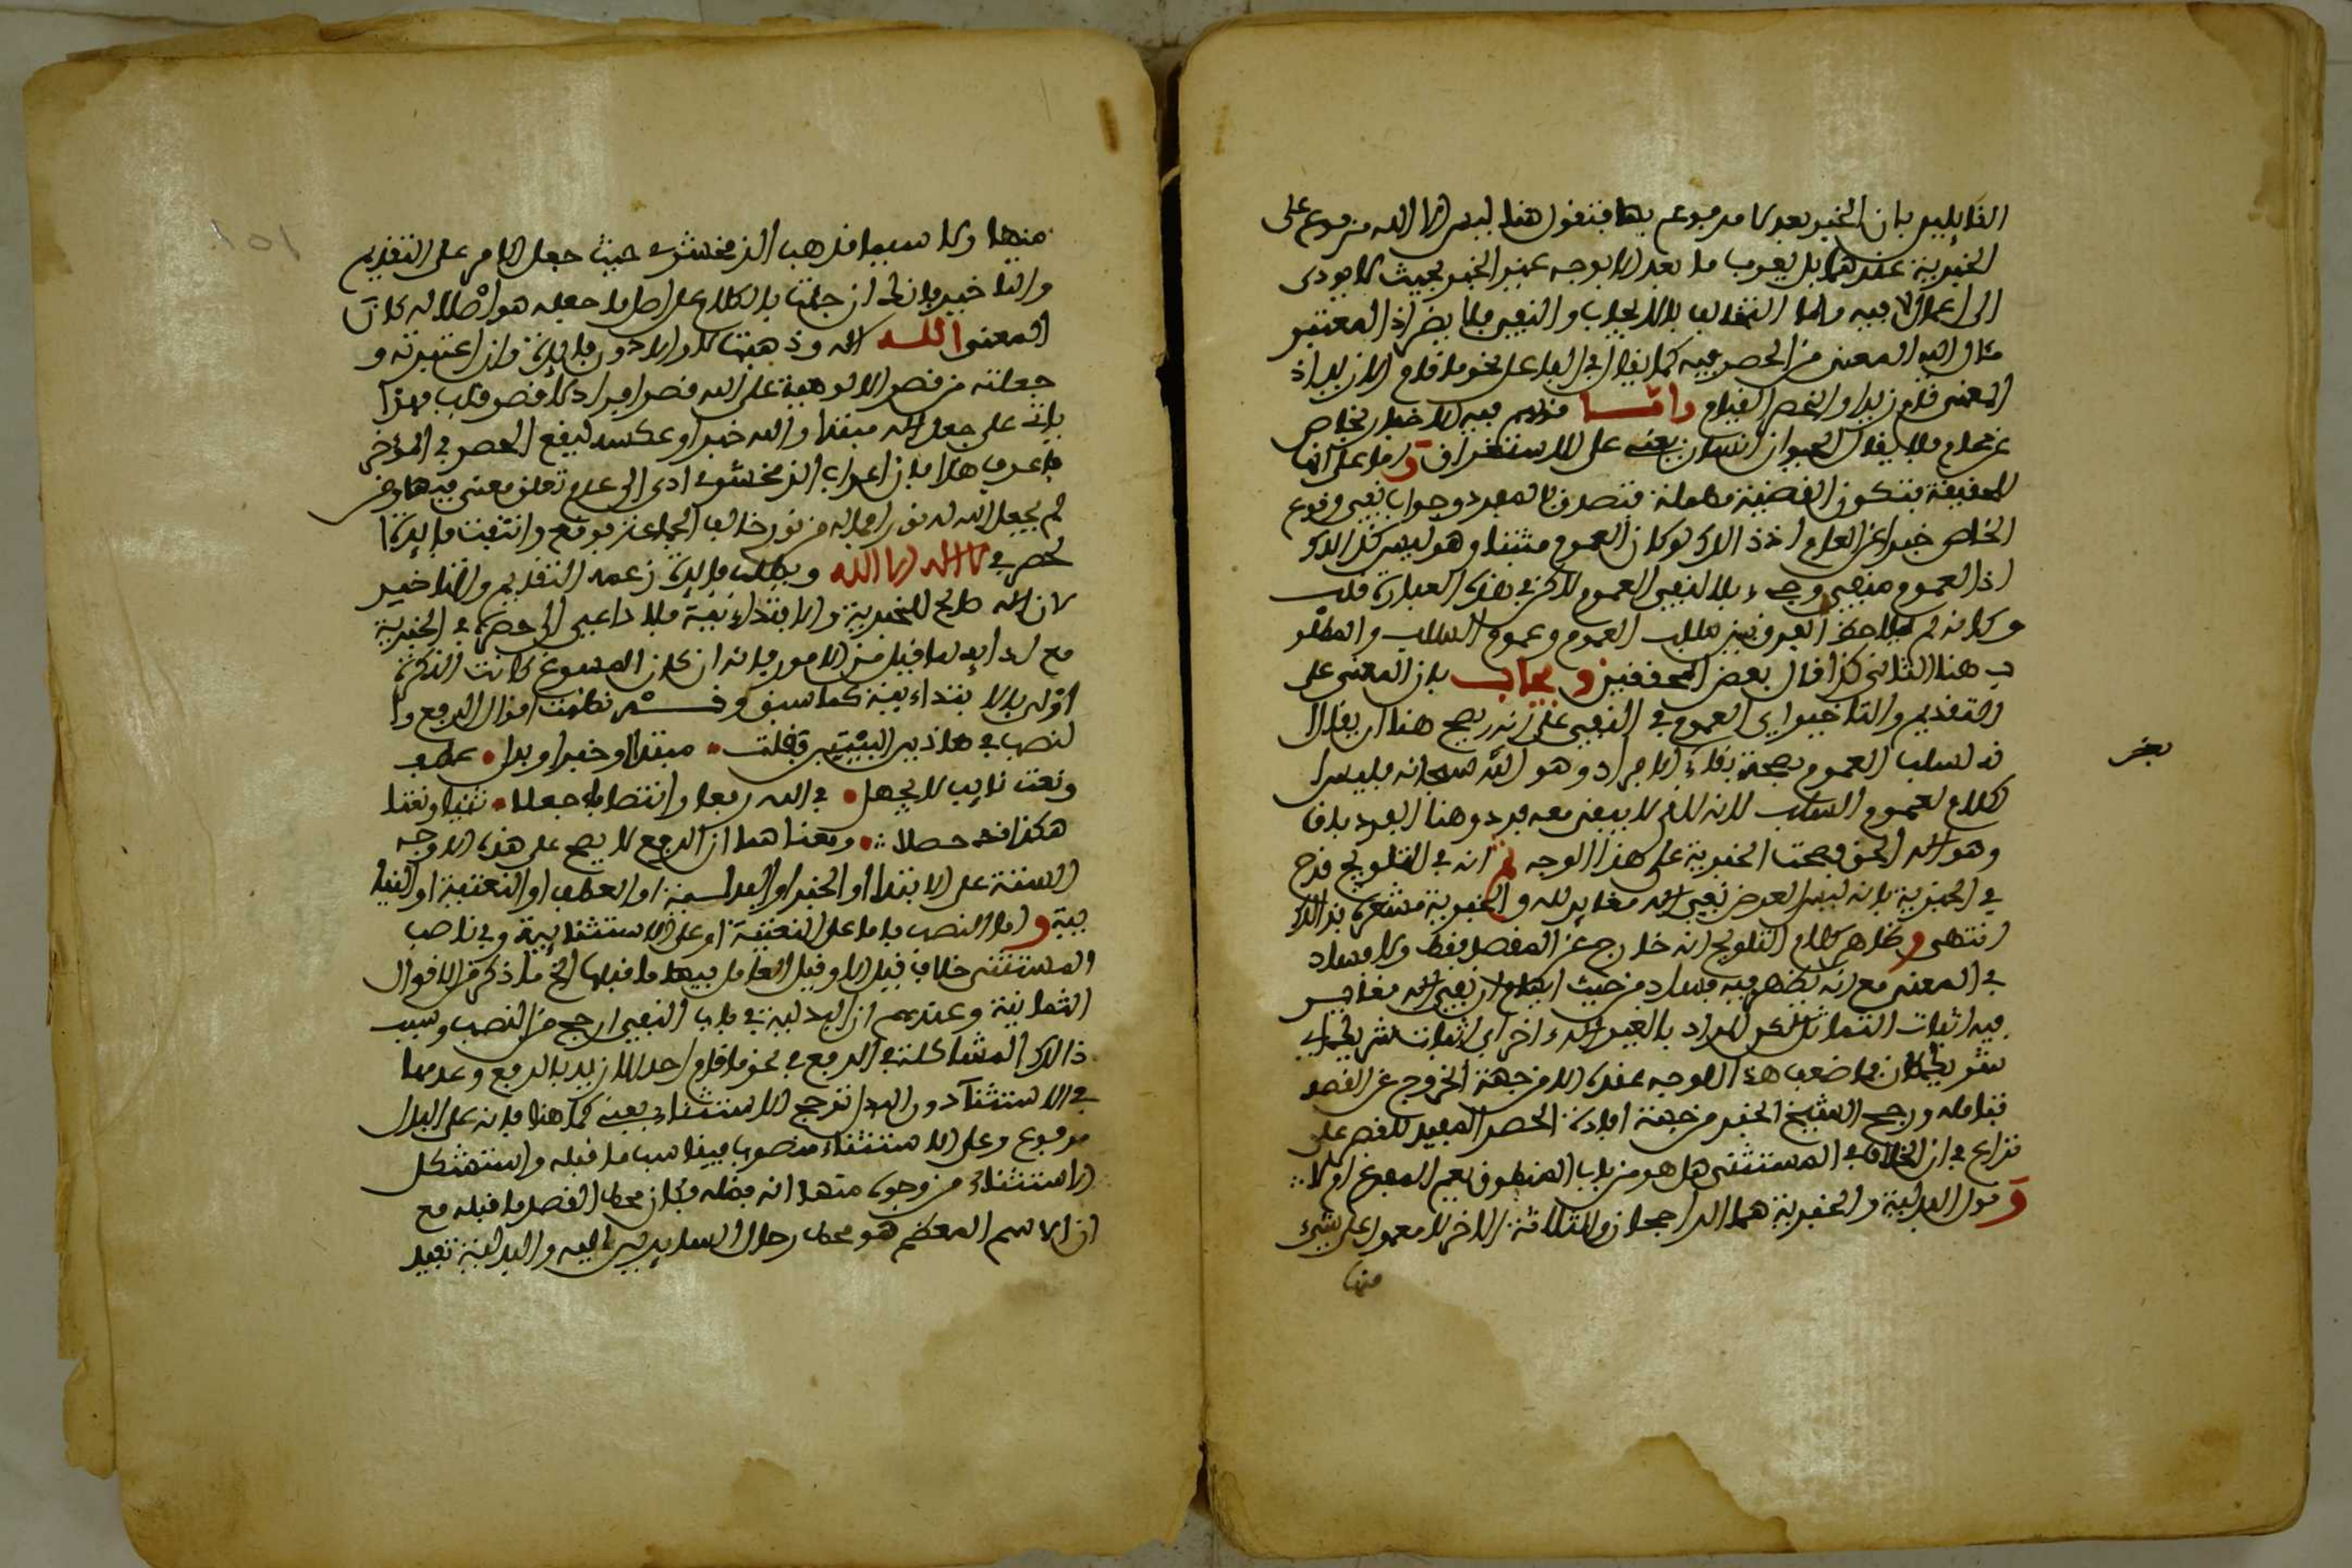 القايلين بان الخبر بعد لا مرفوع بها فنقول هنا ليس الا الله مرفوع على
الخبرية عندهما بل يعرب ما بعد الا بوجه غير الخبر بحيث لا يودى
الى اعمال لا فيه واما التخالف بالايجاب والنفي فلا يضر اذ المعتبر
مآل اليه المعنى من الحصر فيه كما يقال في الفاعل نحو ما قام الا زيد اذ
المعنى قام زيد وانحصر القيام واما منعهم فيه الاخبار بخاص
عن عام فلا يقال الحيوان انسان يعنى على الاستغراق واما على انها
للحقيقة فتكون القضية مهملة فتصدق بالمفرد وجواب نفي وقوع
الخاص خبرا عن العام اذ ذلك لو كان العموم مثبتا وهو ليس كذلك
اذ العموم منفي وجيء بلا لنفي العموم لكن في هذه العبارة قلب
وكانه لم يلاحظ الفرق بين سلب العموم وعموم السلب والمطلو
ب هنا الثاني كذا قال بعض المحققين ويجاب بان المعنى على
التقديم والتاخير اي العموم في النفي على انه يصح هنا ان يقال ا
نه لسلب العموم بصحة بقاء الافراد وهو الله سبحانه فليس ا
لكلام لعموم السلب لانه الذى لا يبقى معه فرد وهنا الفرد باق
وهو الاله الحق فصحت الخبرية على هذا الوجه ثم انه في التلويح قدح
في الخبرية بانه ليس الغرض نفي اله مغاير لله والخبرية مشعرة بذلك
انتهى وظاهر كلام التلويح انه خارج عن المقصد فقط ولا فساد
في المعنى مع انه يظهر فيه فساد من حيث ايهام ان نفي اله مغاير
فيه اثبات التماثل لكن المراد بالغير اله اخر اي اثبات شريك اي
شريك كان فما ضعف هذا الوجه عنده الا من جهة الخروج عن القصد
فتامله ورجح الشيخ الخبر من جهة افادة الحصر المفيد للقصر على
نزاع في ان الخلاف في المستثنى هل هو من باب المنطوق نعم المفرغ او لا
وقول البدلية والخبرية هما الراجحان والثلاثة الاخر لا معول على شيء
منها
يخر
منها ولا سيما مذهب الزمخشري حيث جعل الامر على التقديم
والتاخير فانك ان جئت بالكلام على اصل ما جعله هو اصلا له كان
المعنى الله اله وذهبت لا والا دون فايدة وان اعتبرته و
جعلته من قصر الالوهية على الله قصر افراد لا قصر قلب فهذا
يات على جعل اله مبتدا والله خبرا وعكسه ليقع الحصر في المؤخر
فاعرف هذا فان اعراب الزمخشري ادى الى عدم تعلق معنى فيها ومن
لم يجعل الله له نورا فما له من نور خالف الجماعة فوقع وانتفت فايدة ا
لحصر في لا اله الا الله وبطلت فايدة زعمه التقديم والتاخير
لان اله صالح للخبرية والابتدائية فلا داعى الى حصره في الخبرية
مع اد ايه لما قيل من الامور فانه ان كان المسوغ كانت النكرة
اولى بالابتدائية كما سبق وقـد نظمت اقوال الرفع وا
لنصب في هاذين البيتين فقلت • مبتدا او خبر او بدل • عطف
ونعت نايب لا يجهل • في الله رفعا وانتصابا جعلا • ثنيا ونعتا
هكذا قد حصلا • ومعنا هما ان الرفع لا يصح على هذه الاوجه
الستة على الابتدا او الخبر او البدلية او العطف او النعتية او النيا
بية واما النصب فاما على النعتية او على الاستثنايية وفي ناصب
المستثنى خلاف قيل الا وقيل العامل فيها ما قبلها الخ ما ذكر من الاقوال
الثمانية وعندهم ان البدلية في باب النفي ارجح من النصب وسبب
ذالك المشاكلة في الرفع في نحو ما قام احد الا زيد بالرفع وعدمها
في الاستثنآ دون البدل ترجح الاستثناء بعينه كما هنا فانه على البدل
مرفوع وعلى الاستثناء منصوب فيناسب ما قبله واستشكل
الاستثناء من وجوه منها انه فضله فكان محط القصد ما قبله مع
ان الاسم المعظم هو محط رحال السايرين اليه والبدلية تفيد